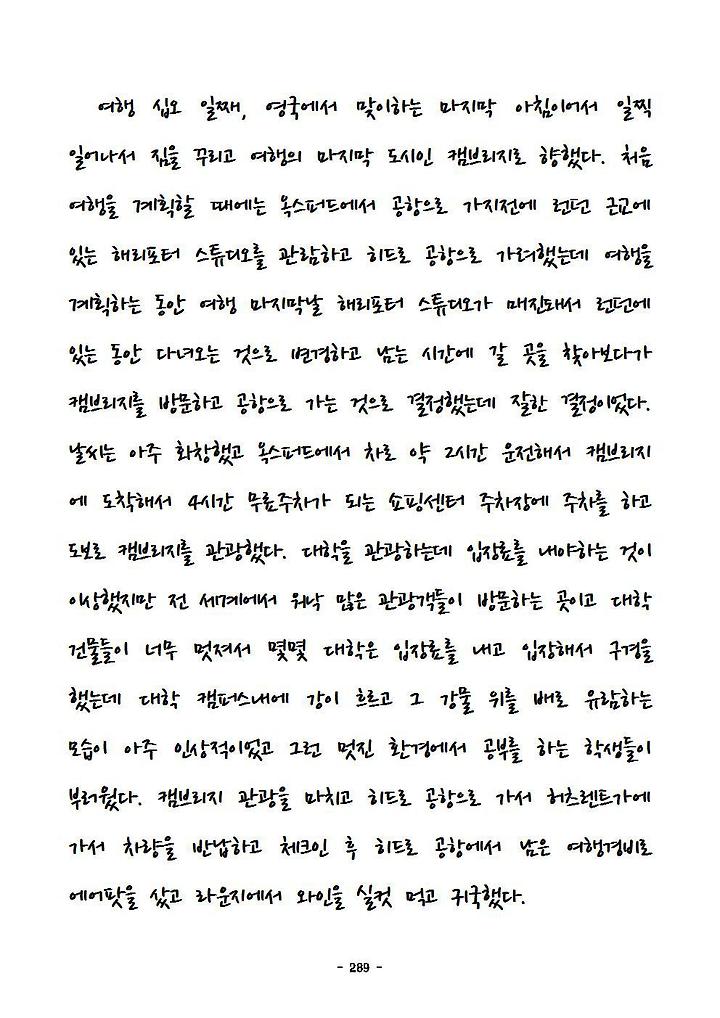 여행 십오 일째, 영국에서 맞이하는 마지막 아침이어서 일찍
일어나서 짐을 꾸리고 여행의 마지막 도시인 캠브리지로 향했다. 처음
여행을 계획할 때에는 옥스퍼드에서 공항으로 가지전에 런던 근교에
있는 해리포터 스튜디오를 관람하고 히드로 공항으로 가려했는데 여행을
계획하는 동안 여행 마지막날 해리포터 스튜디오가 매진돼서 런던에
있는 동안 다녀오는 것으로 변경하고 남는 시간에 갈 곳을 찾아보다가
캠브리지를 방문하고 공항으로 가는 것으로 결정했는데 잘한 결정이었다.
날씨는 아주 화창했고 옥스퍼드에서 차로 약 2시간 운전해서 캠브리지
에 도착해서 4시간 무료주차가 되는 쇼핑센터 주차장에 주차를 하고
도보로 캠브리지를 관광했다. 대학을 관광하는데 입장료를 내야하는 것이
이상했지만 전 세계에서 워낙 많은 관광객들이 방문하는 곳이고 대학
건물들이 너무 멋져서 몇몇 대학은 입장료를 내고 입장해서 구경을
했는데 대학 캠퍼스내에 강이 흐르고 그 강물 위를 배로 유람하는
모습이 아주 인상적이었고 그런 멋진 환경에서 공부를 하는 학생들이
부러웠다. 캠브리지 관광을 마치고 히드로 공항으로 가서 허츠렌트가에
가서 차량을 반납하고 체크인 후 히드로 공항에서 남은 여행경비로
에어팟을 샀고 라운지에서 와인을 실컷 먹고 귀국했다.
- 289 -